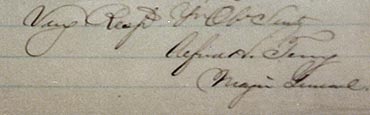 Very Respy Yr Ob Servt
Alfred H. Terry
Major General